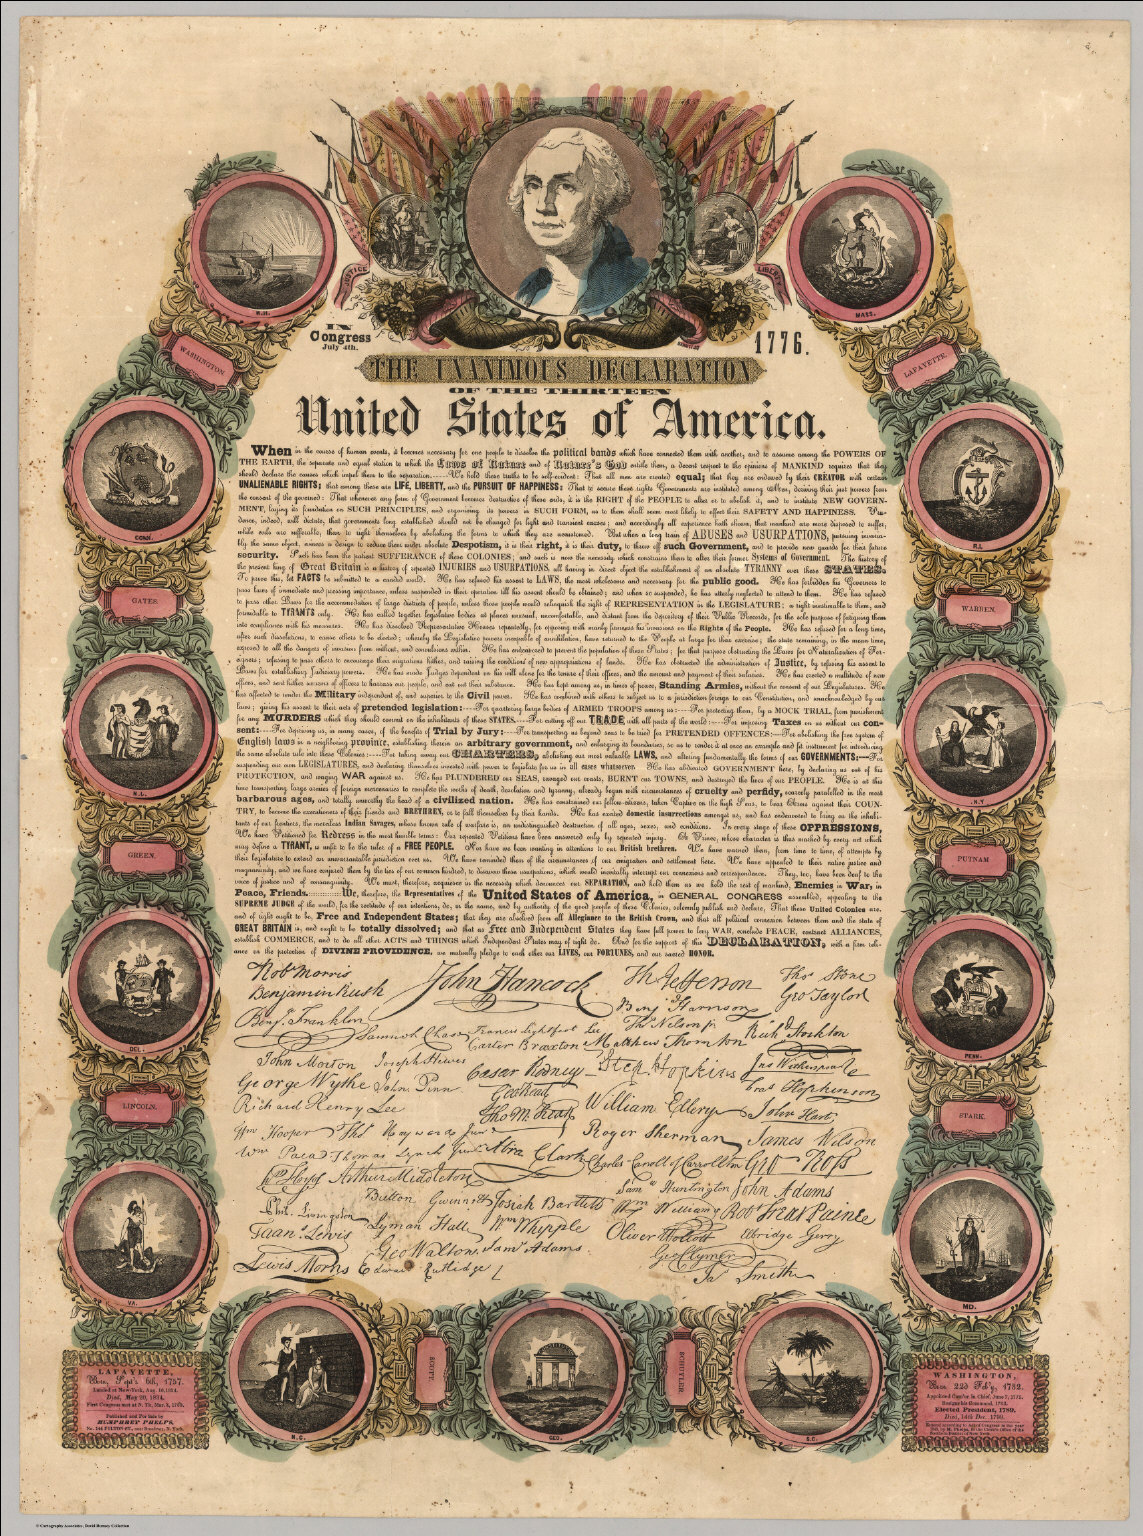 JUSTICE
LIBERTY
N.H.
MASS.
IN
Congress
July 4th.
1776.
WASHINGTON
LAFAYETTE.
THE UNANIMOUS DECLARATION
OF THE THIRTEEN
United States of America.
When in the course of human events, it becomes necessary for one people to dissolve the political bands which have connected them with another, and to assume among the POWERS OF
THE EARTH, the separate and equal station to which the Laws of Nature and of Nature's God entitle them, a decent respect to the opinions of MANKIND requires that they
should declare the causes which impel them to the separation. We hold these truths to be self-evident: That all men are created equal; that they are endowed by their CREATOR with certain
UNALIENABLE RIGHTS; that among these are LIFE, LIBERTY, and the PURSUIT OF HAPPINESS: That to secure these rights Governments are instituted among Men, deriving their just powers from
the consent of the governed: That whenever any form of Government becomes destructive of these ends, it is the RIGHT of the PEOPLE to alter or to abolish it, and to institute NEW GOVERN-
MENT, laying its foundation on SUCH PRINCIPLES, and organizing its powers in SUCH FORM, as to them shall seem most likely to effect their SAFETY AND HAPPINESS. Pru-
dence, indeed, will dictate, that governments long established should not be changed for light and transient causes; and accordingly all experience hath shown, that mankind are more disposed to suffer,
while evils are sufferable, than to right themselves by abolishing the forms to which they are accustomed. But when a long train of ABUSES and USURPATIONS, pursuing invaria-
bly the same object, evinces a design to reduce them under absolute Despotism, it is their right, it is their duty, to throw off such Government, and to provide new guards for their future
security. Such has been the patient SUFFERANCE of these COLONIES; and such is now the necessity which constrains them to alter their former Systems of Government. The history of
the present king of Great Britain is a history of repeated INJURIES and USURPATIONS, all having in direct object the establishment of an absolute TYRANNY over these STATES.
To prove this, let FACTS be submitted to a candid world. He has refused his assent to LAWS, the most wholesome and necessary for the public good. He has forbidden his Governors to
pass laws of immediate and pressing importance, unless suspended in their operation till his assent should be obtained; and when so suspended, he has utterly neglected to attend to them. He has refused
to pass other Laws for the accommodation of large districts of people, unless those people would relinquish the right of REPRESENTATION in the LEGISLATURE; a right inestimable to them, and
formidable to TYRANTS only. He has called together legislative bodies at places unusual, uncomfortable, and distant from the depository of their Public Records, for the sole purpose of fatiguing them
into compliance with his measures. He has dissolved Representative Houses repeatedly, for opposing with manly firmness his invasions on the Rights of the People. He has refused for a long time,
after such dissolutions, to cause others to be elected; whereby the Legislative powers incapable of annihilation, have returned to the People at large for their exercise; the state remaining, in the mean time,
exposed to all the dangers of invasion from without, and convulsions within. He has endeavored to prevent the population of these States; for that purpose obstructing the Laws for Naturalization of For-
eigners; refusing to pass others to encourage their migrations hither, and raising the conditions of new appropriations of lands. He has obstructed the administration of Justice, by refusing his assent to
Laws for establishing Judiciary powers. He has made Judges dependent on his will alone for the tenure of their offices, and the amount and payment of their salaries. He has erected a multitude of new
offices, and sent hither swarms of officers to harrass our people, and eat out their substance. He has kept among us, in times of peace, Standing Armies, without the consent of our Legislatures. He
has affected to render the Military independent of, and superior to the Civil power. He has combined with others to subject us to a jurisdiction foreign to our Constitution, and unacknowledged by our
laws; giving his assent to their acts of pretended legislation:—For quartering large bodies of ARMED TROOPS among us:—For protecting them, by a MOCK TRIAL, from punishment
for any MURDERS which they should commit on the inhabitants of these STATES.—For cutting off our TRADE with all parts of the world:—For imposing Taxes on us without our con-
sent:—For depriving us, in many cases, of the benefits of Trial by Jury:—For transporting us beyond seas to be tried for PRETENDED OFFENCES:—For abolishing the free system of
English laws in a neighboring province, establishing therein an arbitrary government, and enlarging its boundaries, so as to render it at once an example and fit instrument for introducing
the same absolute rule into these Colonies:—For taking away our CHARTERS, abolishing our most valuable LAWS, and altering fundamentally the forms of our GOVERNMENTS:—For
suspending our own LEGISLATURES, and declaring themselves invested with power to legislate for us in all cases whatsoever. He has abdicated GOVERNMENT here, by declaring us out of his
PROTECTION, and waging WAR against us. He has PLUNDERED our SEAS, ravaged our coasts, BURNT our TOWNS, and destroyed the lives of our PEOPLE. He is at this
time transporting large armies of foreign mercenaries to complete the works of death, desolation and tyranny, already begun with circumstances of cruelty and perfidy, scarcely paralleled in the most
barbarous ages, and totally unworthy the head of a civilized nation. He has constrained our fellow-citizens, taken Captive on the high Seas, to bear Arms against their COUN-
TRY, to become the executioners of their friends and BRETHREN, or to fall themselves by their hands. He has excited domestic insurrections amongst us, and has endeavored to bring on the inhabi-
tants of our frontiers, the merciless Indian Savages, whose known rule of warfare is, an undistinguished destruction of all ages, sexes, and conditions. In every stage of these OPPRESSIONS,
We have Petitioned for Redress in the most humble terms: Our repeated Petitions have been answered only by repeated injury. A Prince, whose character is thus marked by every act which
may define a TYRANT, is unfit to be the ruler of a FREE PEOPLE. Nor have we been wanting in attentions to our British brethren. We have warned them, from time to time, of attempts by
their legislature to extend an unwarrantable jurisdiction over us. We have reminded them of the circumstances of our emigration and settlement here. We have appealed to their native justice and
magnanimity, and we have conjured them by the ties of our common kindred, to disavow these usurpations, which would inevitably interrupt our connexions and correspondence. They, too, have been deaf to the
voice of justice and of consanguinity. We must, therefore, acquiesce in the necessity which denounces our SEPARATION, and hold them as we hold the rest of mankind, Enemies in War; in
Peace, Friends. We, therefore, the Representatives of the United States of America, in GENERAL CONGRESS assembled, appealing to the
SUPREME JUDGE of the world, for the rectitude of our intentions, do, in the name, and by authority of the good people of these Colonies, solemnly publish and declare, That these United Colonies are,
and of right ought to be, Free and Independent States; that they are absolved from all Allegiance to the British Crown, and that all political connexion between them and the state of
GREAT BRITAIN is, and ought to be totally dissolved; and that as Free and Independent States they have full power to levy WAR, conclude PEACE, contract ALLIANCES,
establish COMMERCE, and to do all other ACTS and THINGS which Independent States may of right do. And for the support of this DECLARATION, with a firm reli-
ance on the protection of DIVINE PROVIDENCE, we mutually pledge to each other our LIVES, our FORTUNES, and our sacred HONOR.
Robt Morris John Hancock Th Jefferson Thos Stone
Benjamin Rush Benj Harrison Geo Taylor
Benj. Franklin Samuel Chase Francis Lightfoot Lee Thos Nelson jr. Richd Stockton
Carter Braxton Matthew Thornton
John Morton Joseph Hewes Caesar Rodney Step. Hopkins Jno Witherspoon
George Wythe John Penn Geo Read Fras Hopkinson
Richard Henry Lee Tho M. Kean William Ellery John Hart
Wm Hooper Thos Heyward Junr Roger Sherman James Wilson
Wm Paca Thomas Lynch Junr Abra Clark Charles Carroll of Carrollton Geo Ross
Arthur Middleton Saml Huntington John Adams
Button Gwinnett Josiah Bartlett Wm Williams Robt Treat Paine
Phil. Livingston Lyman Hall Wm Whipple Oliver Wolcott Elbridge Gerry
Geo Walton Saml Adams Geo Clymer
Lewis Morris Edward Rutledge Ja Smith
CONN.
R.I.
GATES.
WARREN.
N.J.
N.Y
GREEN.
PUTNAM
DEL.
PENN.
LINCOLN.
STARK.
VA.
MD.
N.C.
GEO.
SCHUYLER
S.C.
LAFAYETTE,
Born, Sept'r 6th, 1757.
Landed at New-York, Aug. 16, 1824.
Died, May 20, 1834.
First Congress met at N. Yk, Mar. 3, 1789.
Published and For Sale by
HUMPHREY PHELPS,
No. 144 FULTON-ST., near Broadway, N. York.
WASHINGTON,
Born 22d Feb'y, 1732.
Appointed Com'er in Chief, June 7, 1775.
Resigns his Command, 1783.
Elected President, 1789.
Died, 14th Dec. 1799.
© Cartography Associates, David Rumsey Collection